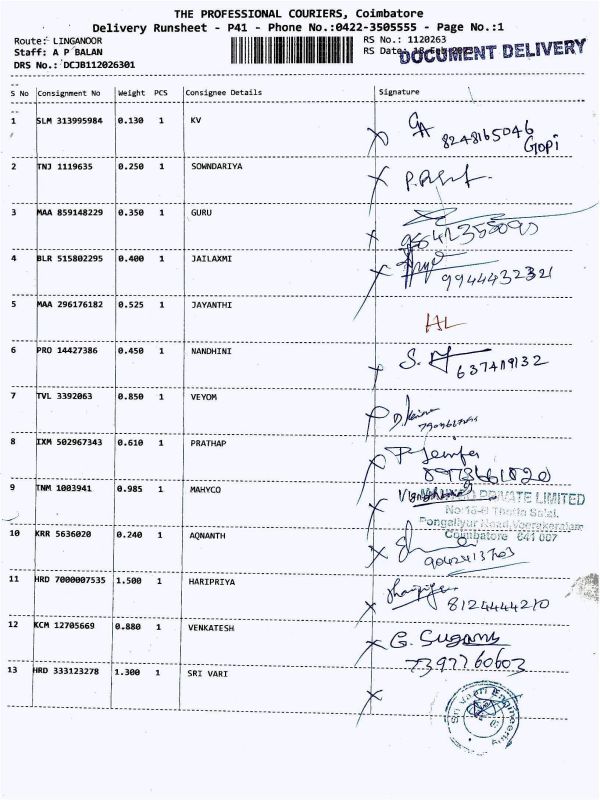 THE PROFESSIONAL COURIERS, Coimbatore
Delivery Runsheet - P41 - Phone No.:0422-3505555 - Page No.:1
Route: LINGANOOR RS No.: 1120263
Staff: A P BALAN RS Date: DOCUMENT DELIVERY
DRS No.: DCJB112026301
S No Consignment No Weight PCS Consignee Details Signature
1 SLM 313995984 0.130 1 KV 8248165046 GOPI
2 TNJ 1119635 0.250 1 SOWNDARIYA
3 MAA 859148229 0.350 1 GURU
4 BLR 515802295 0.400 1 JAILAXMI 9944432321
5 MAA 296176182 0.525 1 JAYANTHI
6 PRO 14427386 0.450 1 NANDHINI
7 TVL 3392063 0.850 1 VEYOM
8 IXM 502967343 0.610 1 PRATHAP
9 TNM 1003941 0.985 1 MAHYCO PRIVATE LIMITED
Coimbatore 641 007
10 KRR 5636020 0.240 1 AQNANTH
11 HRD 7000007535 1.500 1 HARIPRIYA 8124444210
12 KCM 12705669 0.880 1 VENKATESH G. Sugany
7397760603
13 HRD 333123278 1.300 1 SRI VARI